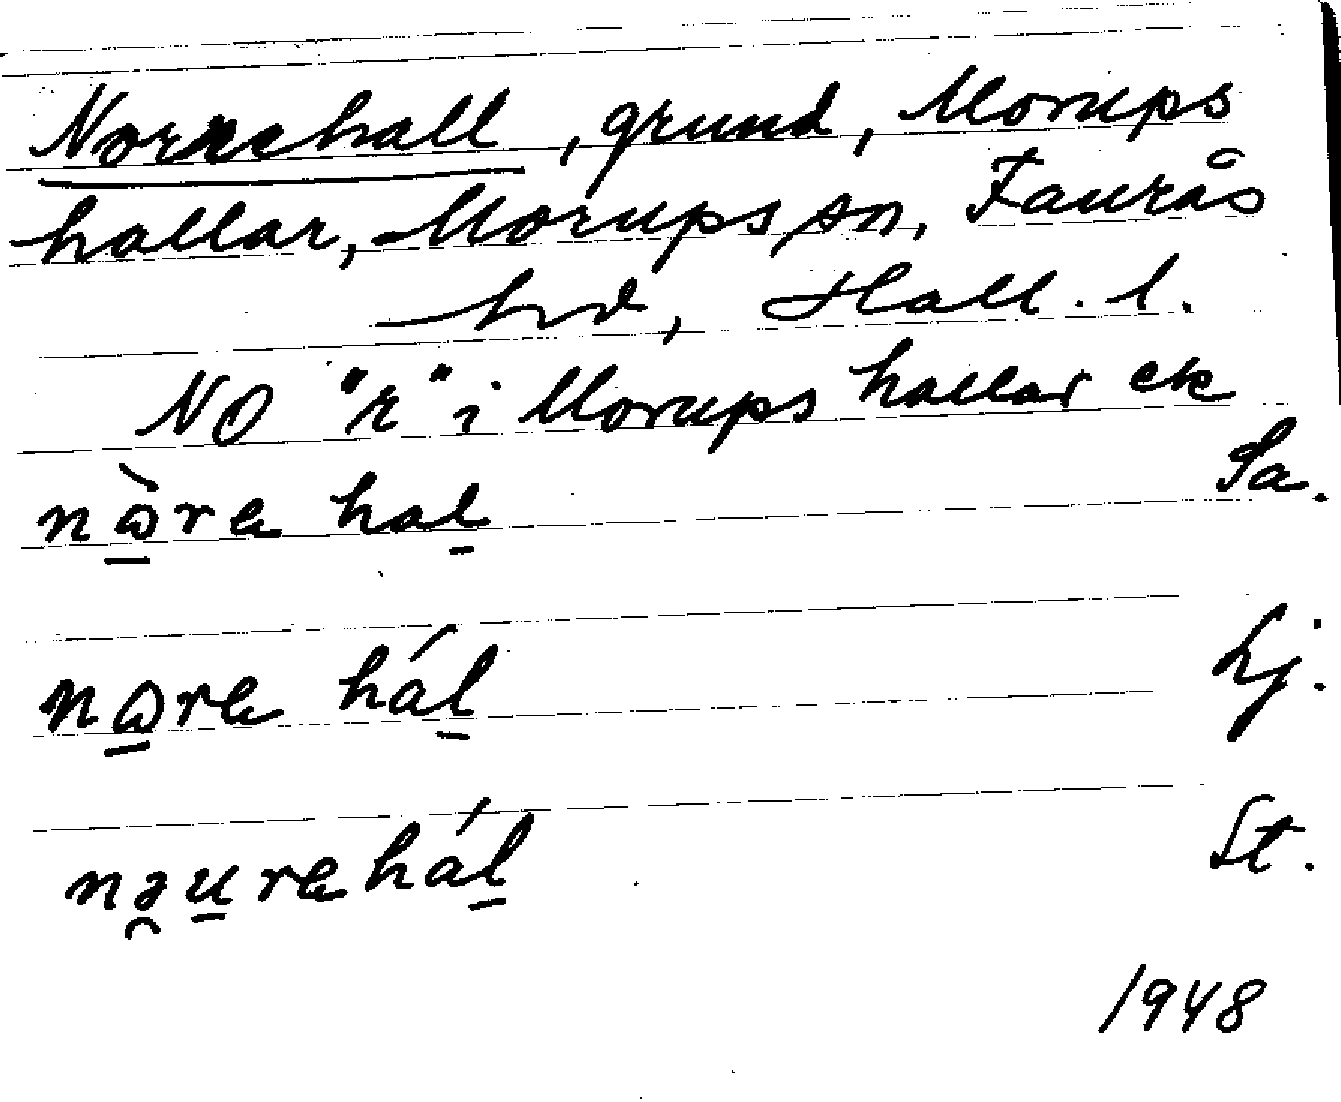 Norrehall, grund, Morups
hallar, Morups sn, Faurås
hd, Hall. l.
NO "r" i Morups hallar ek
nɷ̀ra hal̠ Sa.
nɷra hál̠ Lj.
nə̯u̠rahál̠ St.
1948